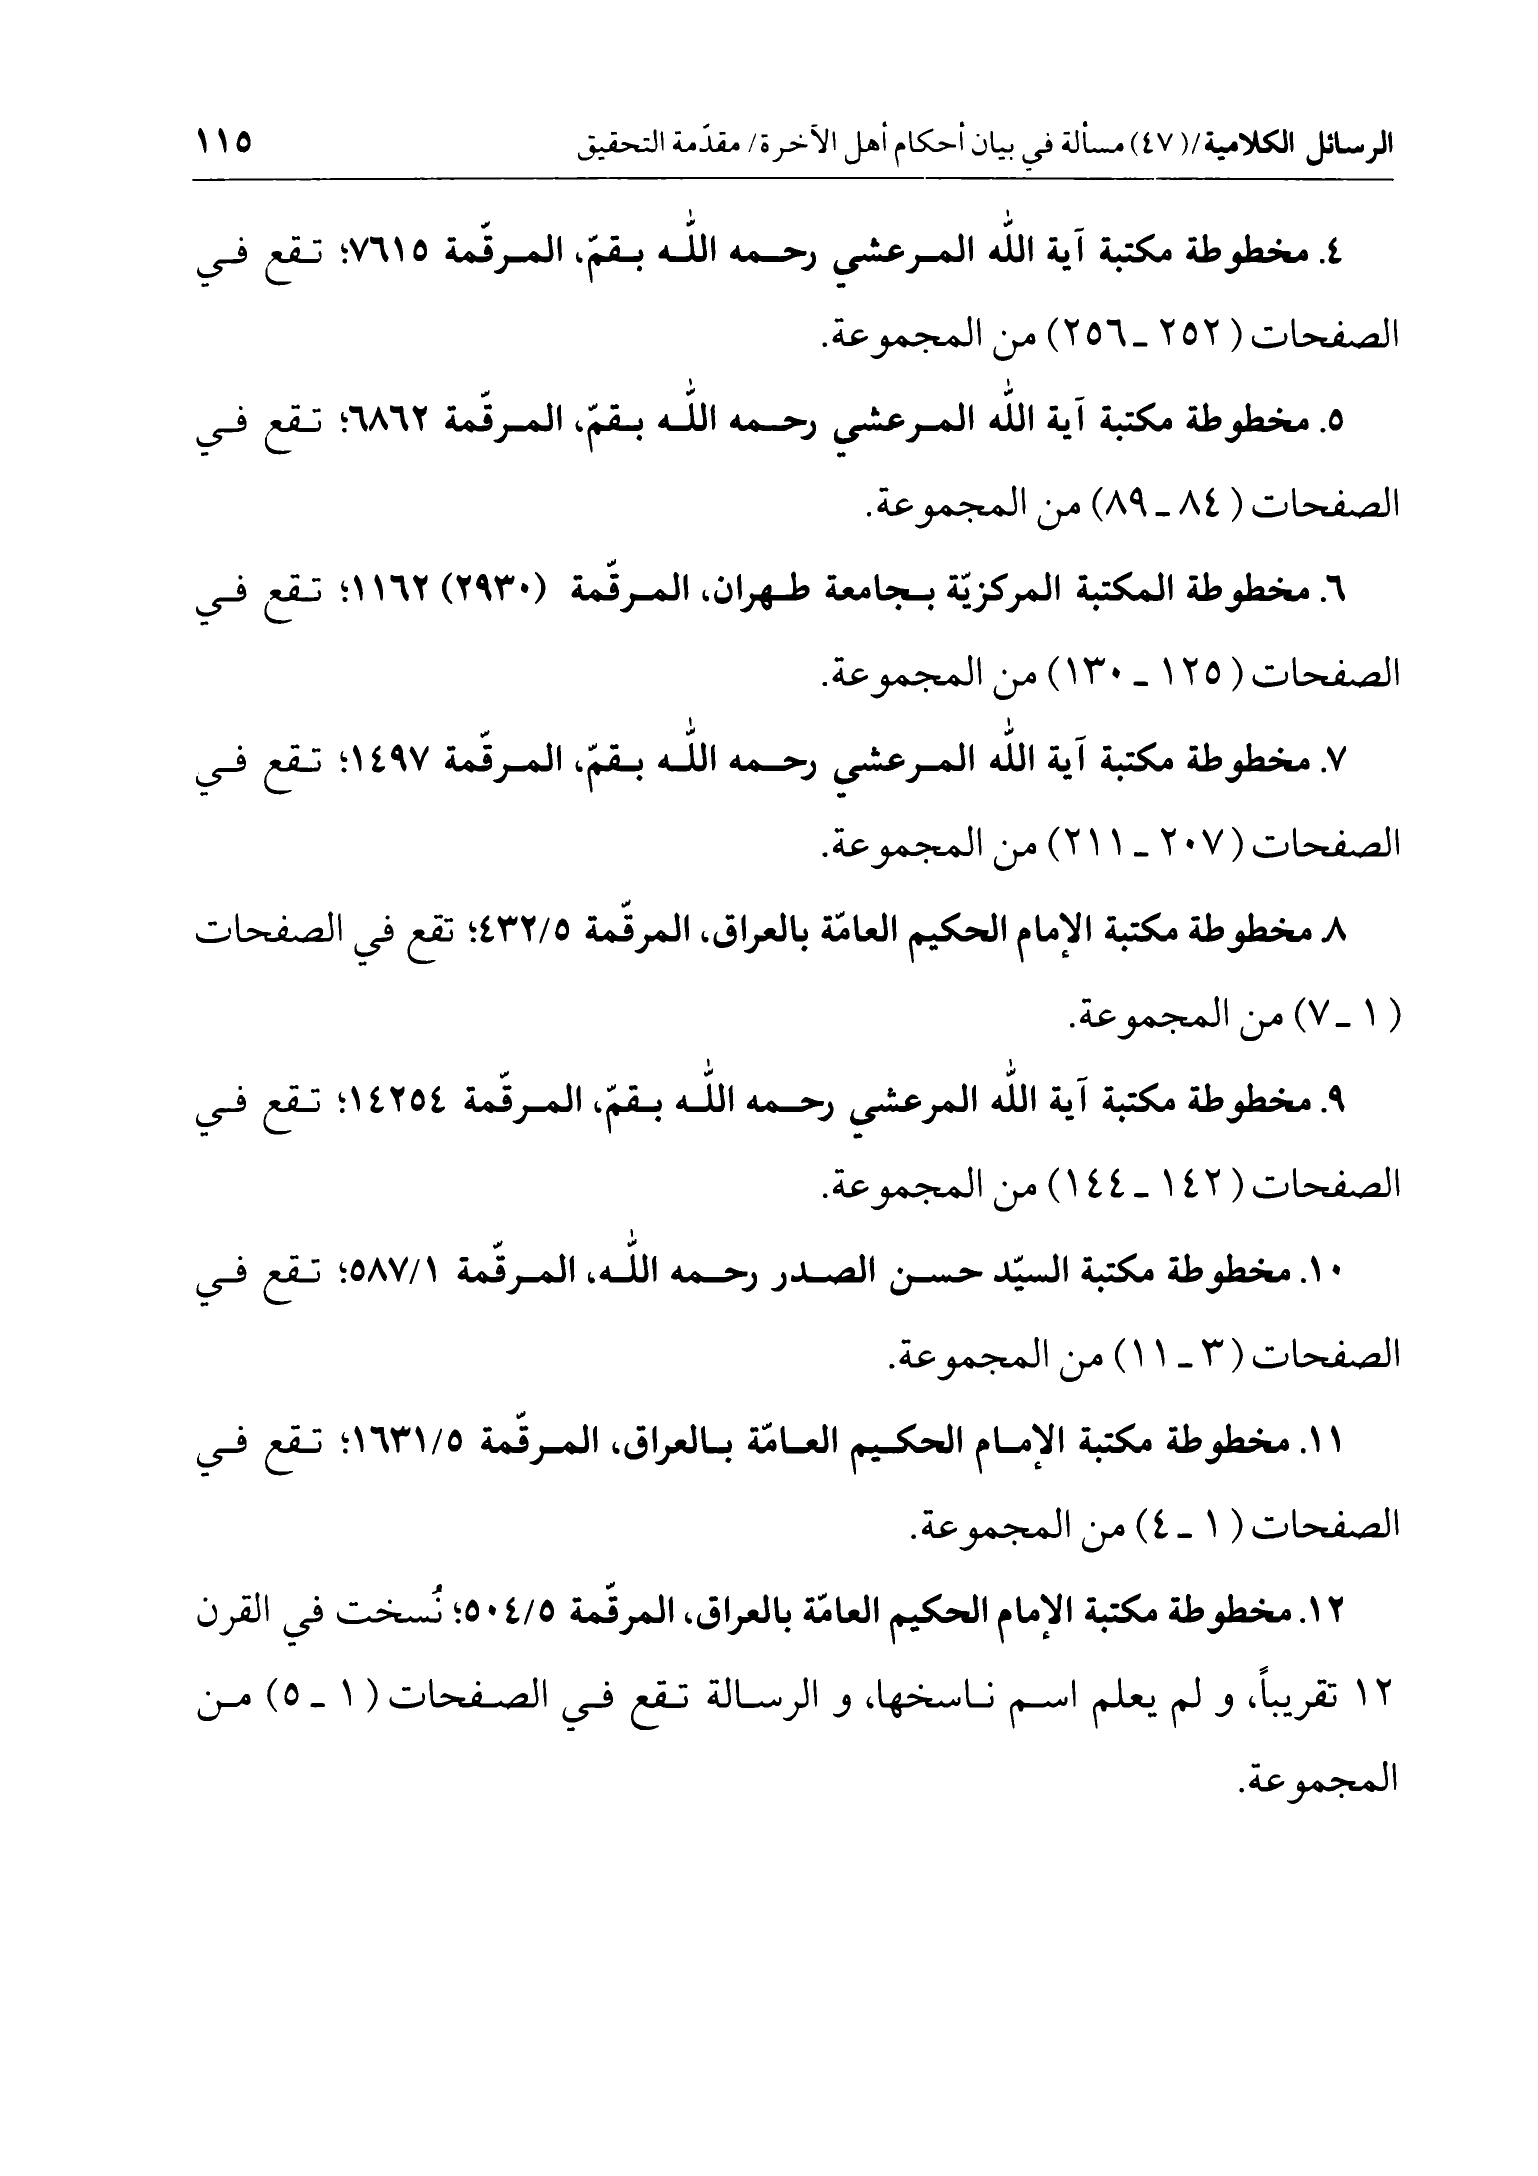 الرسائل الكلامية/(٤٧) مسألة في بيان أحكام أهل الآخرة/ مقدّمة التحقيق ١١٥
٤. مخطوطة مكتبة آية اللّٰه المرعشي رحمه اللّٰه بقمّ، المرقّمة ٧٦١٥؛ تقع في
الصفحات (٢٥٢ ـ ٢٥٦) من المجموعة.
٥. مخطوطة مكتبة آية اللّٰه المرعشي رحمه اللّٰه بقمّ، المرقّمة ٦٨٦٢؛ تقع في
الصفحات (٨٤ ـ ٨٩) من المجموعة.
٦. مخطوطة المكتبة المركزيّة بجامعة طهران، المرقّمة (٢٩٣٠) ١١٦٢؛ تقع في
الصفحات (١٢٥ ـ ١٣٠) من المجموعة.
٧. مخطوطة مكتبة آية اللّٰه المرعشي رحمه اللّٰه بقمّ، المرقّمة ١٤٩٧؛ تقع في
الصفحات (٢٠٧ ـ ٢١١) من المجموعة.
٨. مخطوطة مكتبة الإمام الحكيم العامّة بالعراق، المرقّمة ٤٣٢/٥؛ تقع في الصفحات
(١ ـ ٧) من المجموعة.
٩. مخطوطة مكتبة آية اللّٰه المرعشي رحمه اللّٰه بقمّ، المرقّمة ١٤٢٥٤؛ تقع في
الصفحات (١٤٢ ـ ١٤٤) من المجموعة.
١٠. مخطوطة مكتبة السيّد حسن الصدر رحمه اللّٰه، المرقّمة ٥٨٧/١؛ تقع في
الصفحات (٣ ـ ١١) من المجموعة.
١١. مخطوطة مكتبة الإمام الحكيم العامّة بالعراق، المرقّمة ١٦٣١/٥؛ تقع في
الصفحات (١ ـ ٤) من المجموعة.
١٢. مخطوطة مكتبة الإمام الحكيم العامّة بالعراق، المرقّمة ٥٠٤/٥؛ نُسخت في القرن
١٢ تقريباً، و لم يعلم اسم ناسخها، و الرسالة تقع في الصفحات (١ ـ ٥) من
المجموعة.